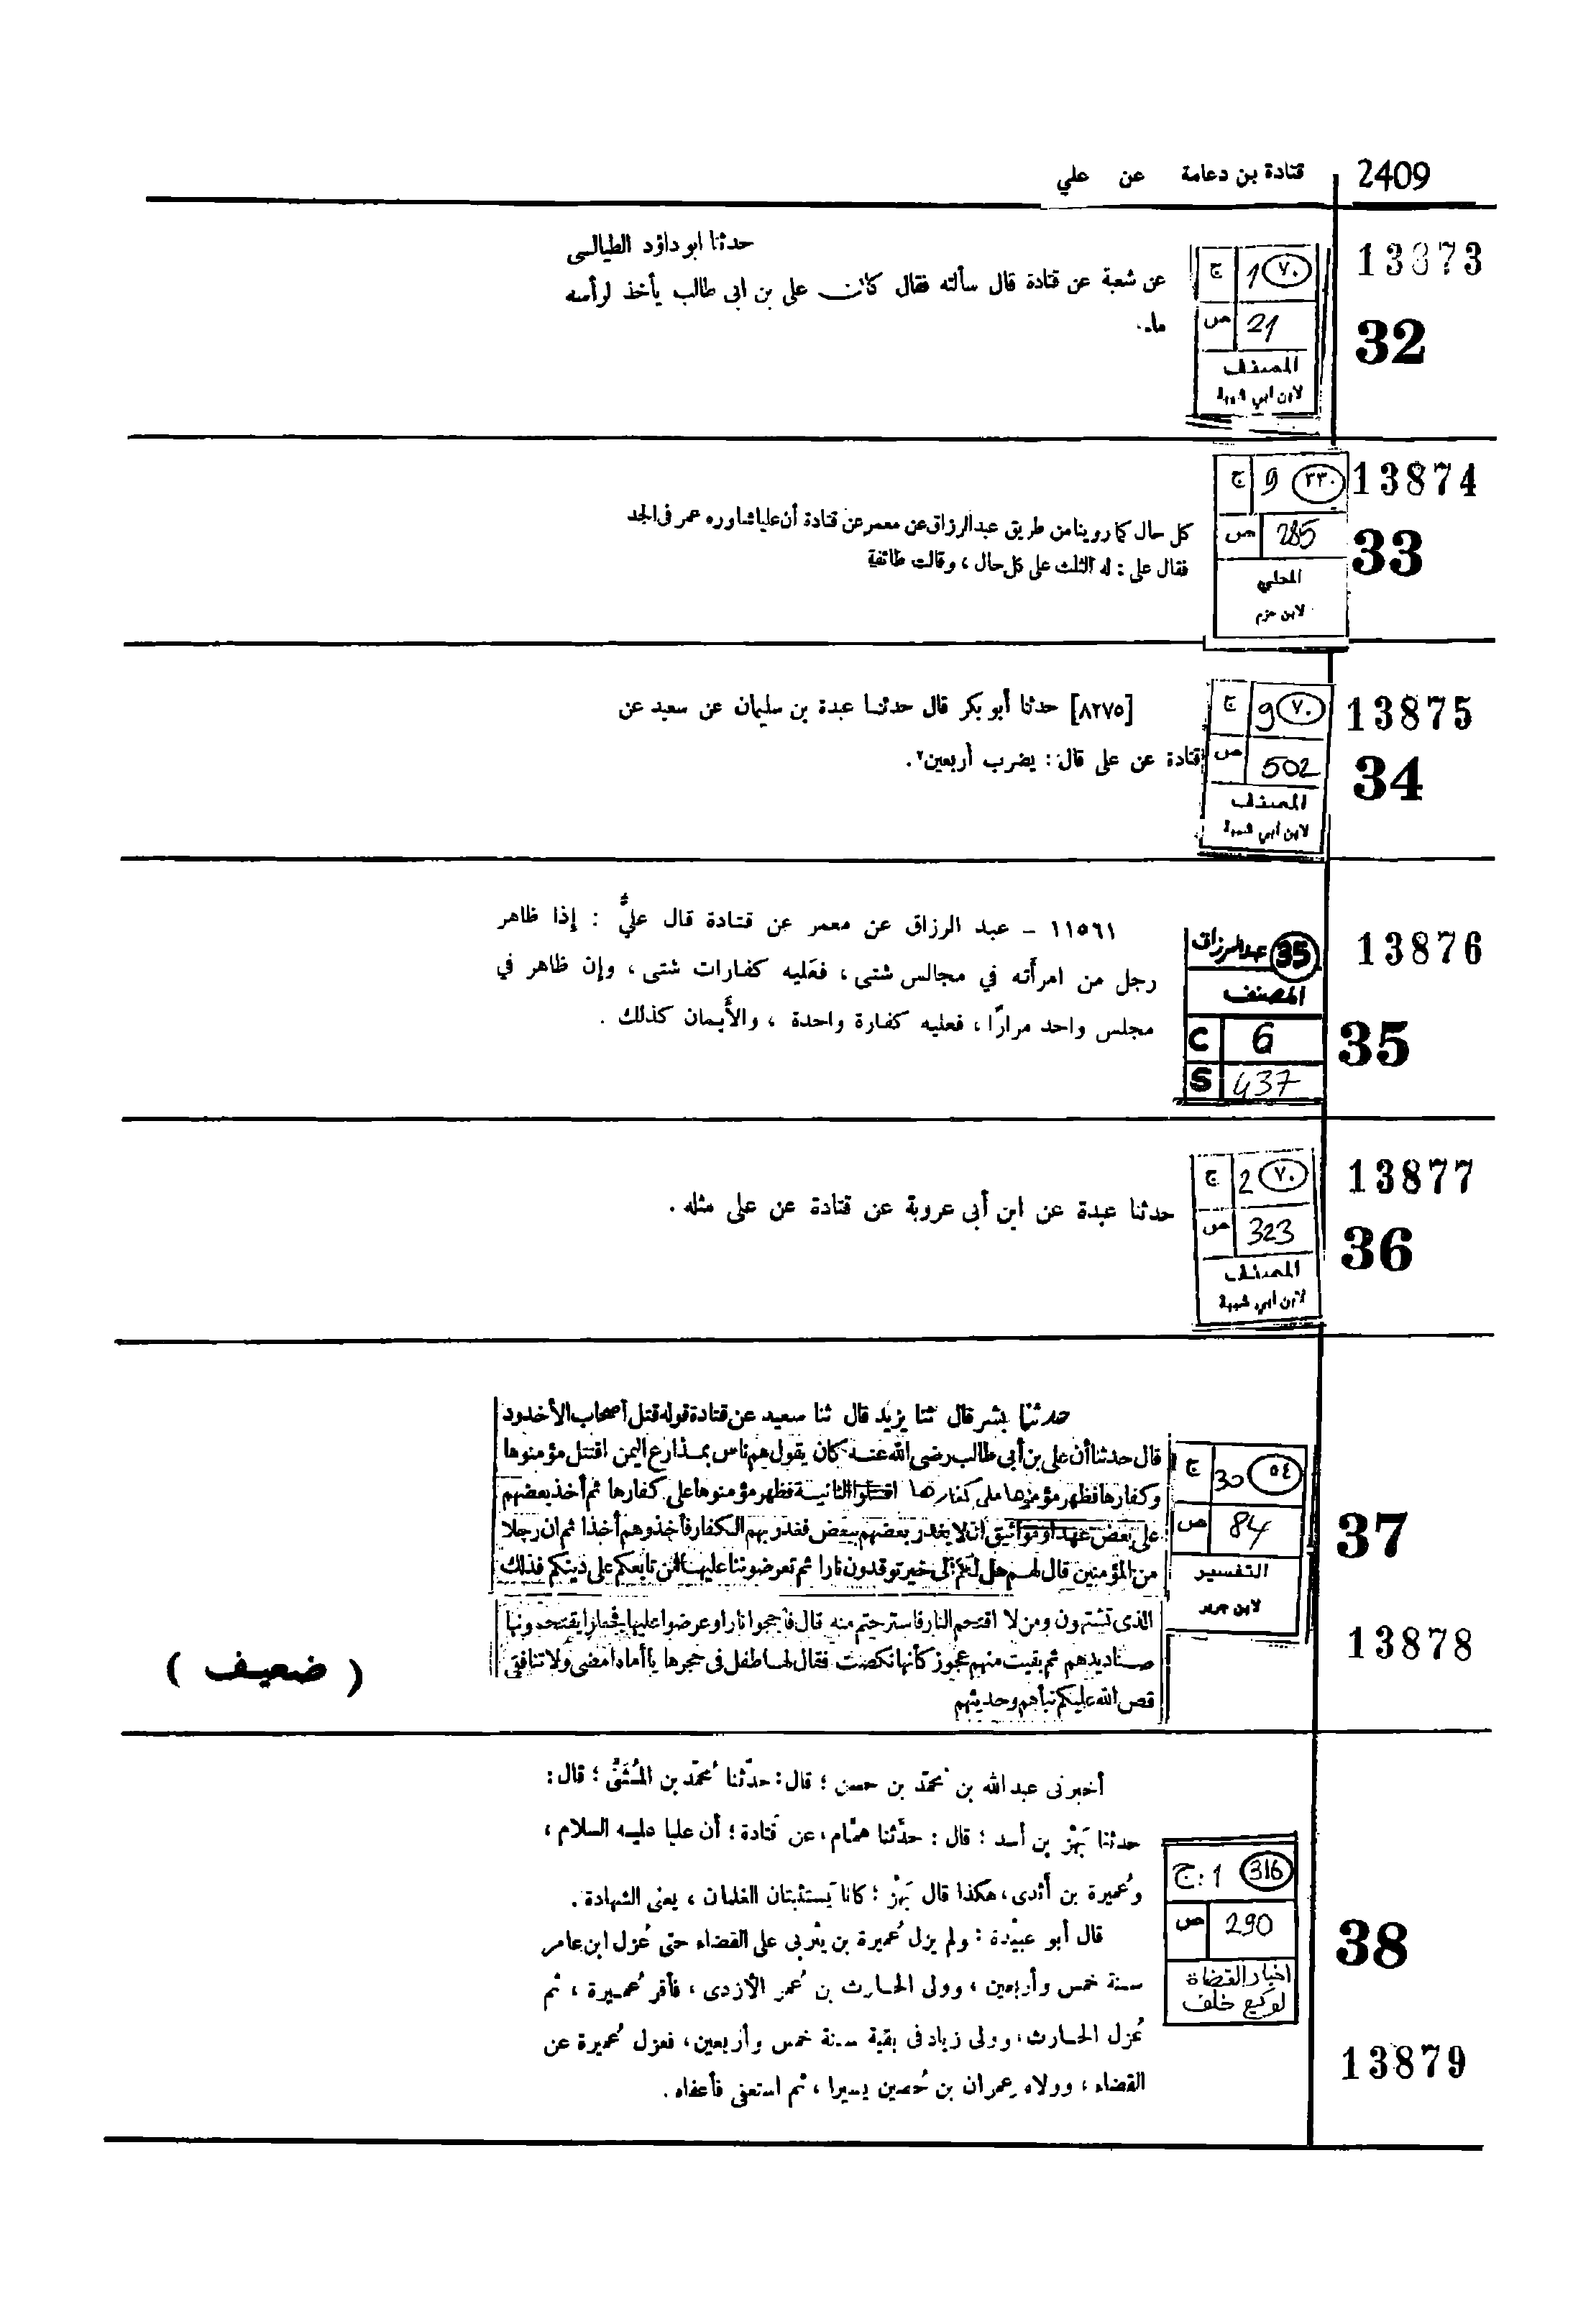 2409 قتادة بن دعامة عن علي
13873
32
ج 1 ٧٠
ص 21
المصنف
لابن أبي شيبة
حدثنا ابو داؤد الطيالسى
عن شعبة عن قتادة قال سألته فقال كان على بن ابى طالب يأخذ لرأسه
ماء.
13874
33
ج 9 ٣٣٠
ص 285
المحلي
لابن حزم
كل حال كما روينا من طريق عبد الرزاق عن معمر عن قتادة أن عليا شاوره عمر فى الجد
فقال على : له الثلث على كل حال ، وقالت طائفة
13875
34
ج 9 ٧٠
ص 502
المصنف
لابن أبي شيبة
[٨٢٧٥] حدثنا أبو بكر قال حدثنا عبدة بن سليمان عن سعيد عن
قتادة عن على قال : يضرب أربعين٢ .
13876
35
35 عبدالرزاق
المصنف
C 6
S 437
١١٥٦١ – عبد الرزاق عن معمر عن قتادة قال عليٌّ : إذا ظاهر
رجل من امرأته في مجالس شتى ، فعليه كفارات شتى ، وإن ظاهر في
مجلس واحد مرارًا ، فعليه كفارة واحدة ، والأَيمان كذلك .
13877
36
ج 2 ٧٠
ص 323
المصنف
لابن أبي شيبة
حدثنا عبدة عن ابن أبى عروبة عن قتادة عن على مثله .
37
13878
ج 30 ٥٤
ص 84
التفسير
لابن جرير
حدثنا بشر قال ثنا يزيد قال ثنا سعيد عن قتادة قوله قتل أصحاب الأخدود
قال حدثنا أن على بن أبي طالب رضى الله عنه كان يقول هم ناس بمذارع اليمن اقتتل مؤمنوها
وكفارها فظهر مؤمنوها على كفارها ثم اقتتلوا الثانية فظهر مؤمنوها على كفارها ثم أخذ بعضهم
على بعض عهدا ومواثيق أن لا يغدر بعضهم ببعض فغدر بهم الكفار فأخذوهم أخذا ثم ان رجلا
من المؤمنين قال لهم هل لكم إلى خير توقدون نارا ثم تعرضوننا عليها فمن تابعكم على دينكم فذلك
الذى تشتهون ومن لا اقتحم النار فاسترحتم منه قال فأججوا نارا وعرضوا عليها فجعلوا يقتحمونها
صناديدهم ثم بقيت منهم عجوز كأنها نكصت فقال لها طفل فى حجرها يا أماه امضى ولا تنافقى
قص الله عليكم نبأهم وحديثهم
( ضعيف )
38
13879
ج: 1 316
ص 290
اخبار القضاة
لوكيع خلف
أخبرنى عبد الله بن محمّد بن حسن ؛ قال : حدّثنا محمّد بن المُثَنَّى ؛ قال :
حدثنا بَهْز بن أسد ؛ قال : حدَّثنا همّام ، عن قَتادة ؛ أن عليا عليه السلام ،
وعُميرة بن أثدى ، هكذا قال بَهْز ؛ كانا يَستثبتان الغلمان ، يعنى الشهادة .
قال أبو عبيْدة : ولم يزل عُميرة بن يثْربى على القضاء حتى عُزل ابن عامر
سنة خمس وأربعين ، وولى الحارث بن عُمر الأزدى ، فأقر عُميرة ، ثم
عُزل الحارث ، وولى زياد فى بقية سنة خمس وأربعين ، فعزل عُميرة عن
القضاء ، وولاه عمران بن حُصين يسيرا ، ثم استعفى فأعفاه .